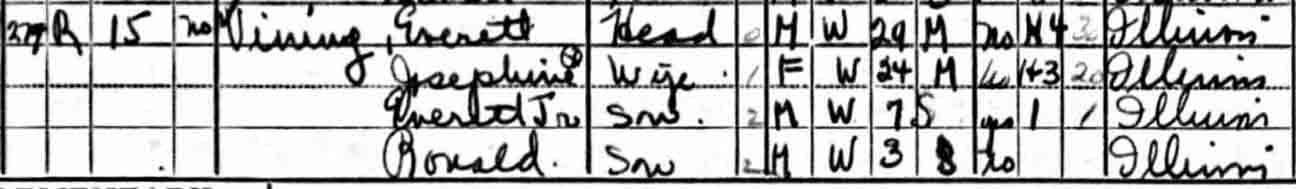 279 R 15 no Vining, Everett Head 0 M W 29 M no H4 30 Illinois
Josephine Wife 1 F W 24 M no H3 20 Illinois
Everett Jr Son 2 M W 7 S yes 1 1 Illinois
Ronald Son 2 M W 3 S no Illinois